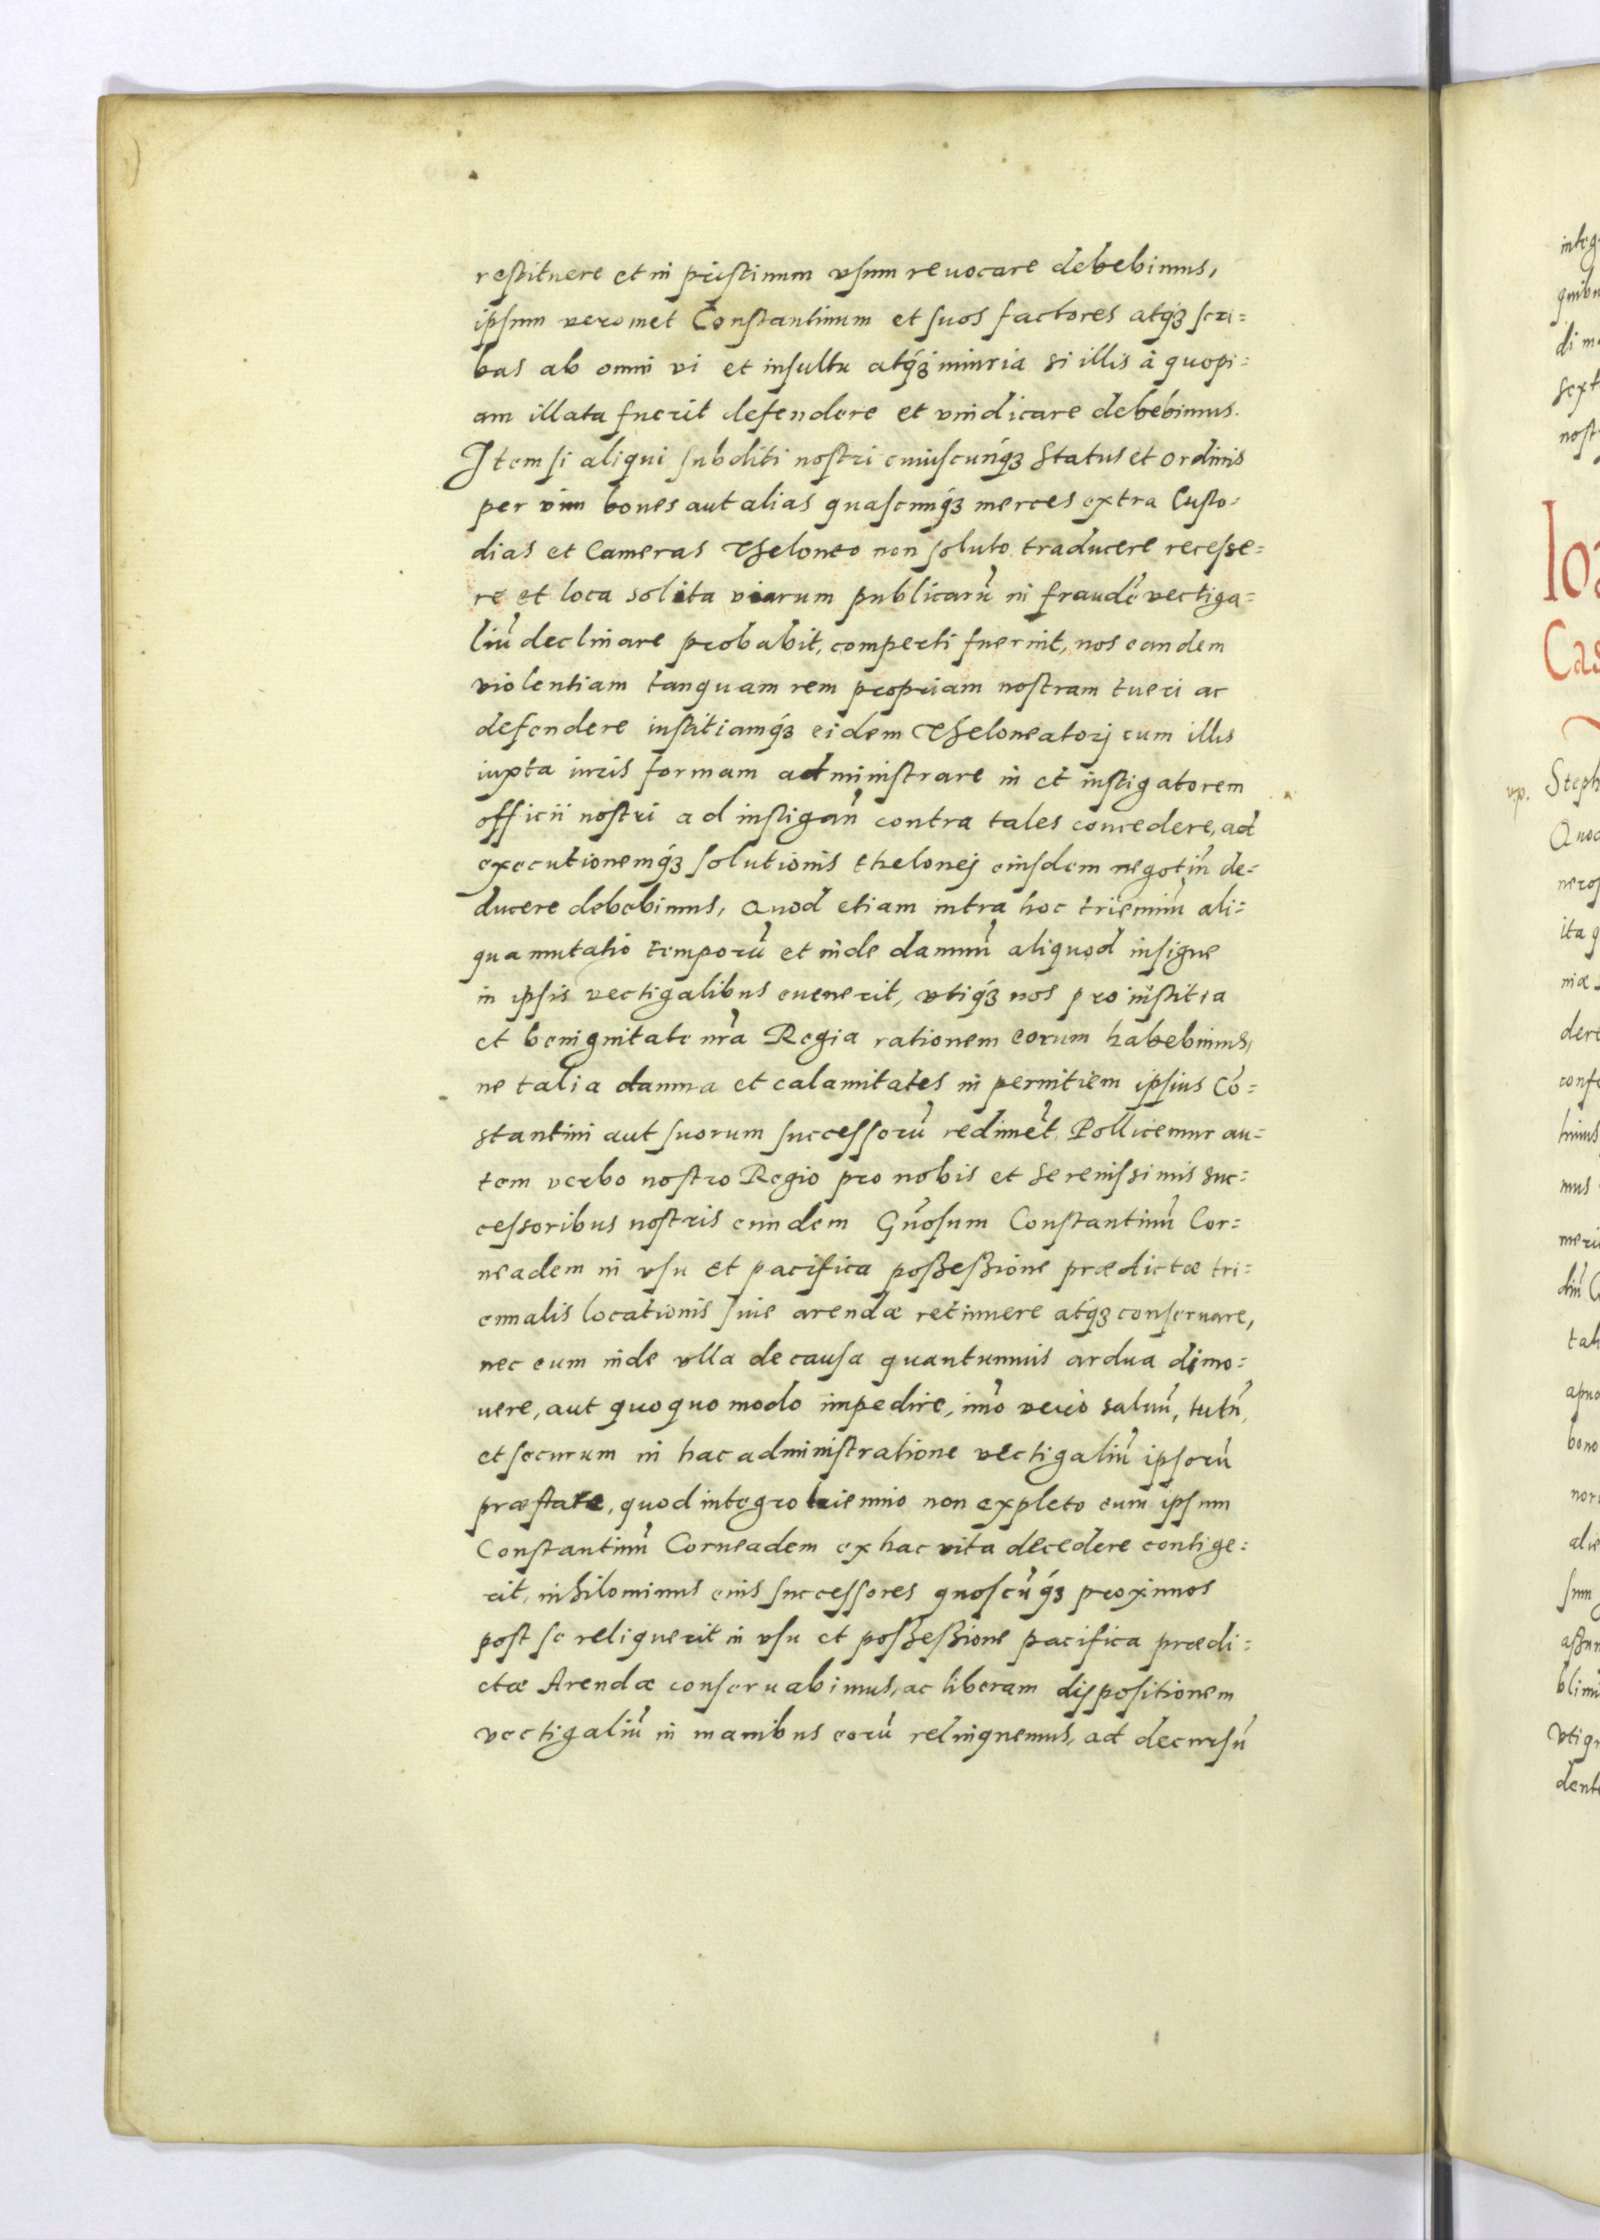 restituere et in pristinum vsum reuocare debebimus,
ipsum veromet Constantinum et suos factores atq́ꝫ scri=
bas ab omni vi et insultu atq́ꝫ iniuria si illis à quopi=
am illata fuerit defendere et vindicare debebimus.
Item si aliqui subditi nostri cuiuscunq́ꝫ Status et ordinis
per vim boues aut alias quascunq́ꝫ merces extra Custo=
dias et Cameras Theloneo non soluto traducere recesse=
re et loca solita viarum publicarũ in fraudẽ vectiga=
liũ declinare probabit, comperti fuerint, nos eandem
violentiam tanquam rem propriam nostram tueri ac
defendere iustitiamq́ꝫ eidem Theloneatorj cum illis
iuxta iuris formam administrare in et instigatorem
officii nostri ad instigañ contra tales concedere, ad
executionemq́ꝫ solutionis thelonej eiusdem negotiũ de=
ducere debebimus, Quod etiam intra hoc trienniũ ali=
qua mutatio temporũ et inde damnũ aliquod insigne
in ipsis vectigalibus euenerit, vtiq́ꝫ nos pro iustitia
et benignitate nr̃a Regia rationem eorum habebimus,
ne talia damna et calamitates in pernitiem ipsius Cõ=
stantini aut suorum successorũ redimẽt. Pollicemur au=
tem verbo nostro Regio pro nobis et serenissimis suc=
cessoribus nostris eundem Gñosum Constantinũ Cor=
neadem in vsu et pacifica possessione prædictæ tri=
ennalis locationis siue arendæ retinuere atq́ꝫ conseruare,
nec eum inde vlla de causa quantumuis ardua dimo=
uere, aut quoquo modo impedire, imõ vero saluũ, tutũ,
et securum in hac administratione vectigaliũ ipsorũ
præstare, quod integro triennio non expleto eum ipsum
Constantinũ Corneadem ex hac vita decedere contige=
rit, nihilominus eius successores quoscũq́ꝫ proximos
post se reliquerit in vsu et possessione pacifica prædi=
ctæ Arendæ conseruabimus, ac liberam dispositionem
vectigaliũ in manibus eorũ relinquemus, ad decursũ
integ
quibu
di m
sext
nost
Ioa
Cas
vp. Steph
Quod
neros
ita q
niæ
dere
conf
huius
mus
meri
diũ C
tal
apud
bono
nor
alie
sum
assu
blimi
vtiq
dent